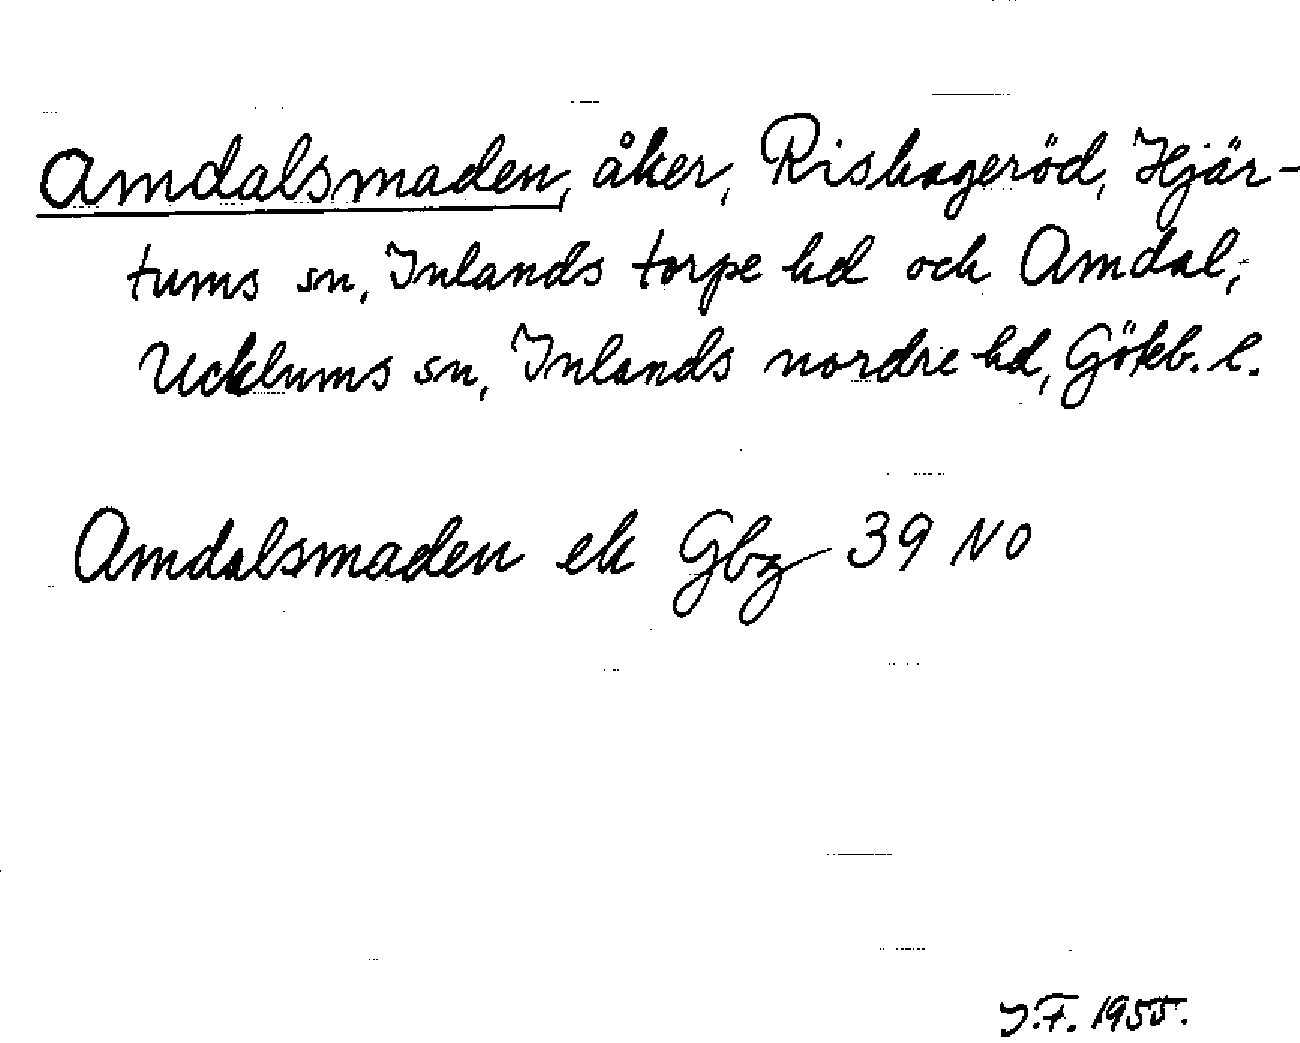 Amdalsmaden, åker, Rishageröd, Hjär-
tums sn, Inlands torpe hd och Amdal,
Ucklums sn, Inlands nordre hd, Gökb. l.
Amdalsmaden ek Gbz 39 NO
J.F. 1955.